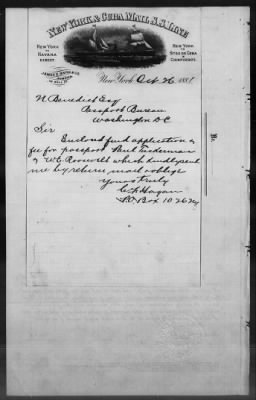 NEW YORK & CUBA MAIL S.S. LINE
NEW YORK
TO
HAVANA
DIRECT.
NEW YORK
TO
CIENFUEGOS.
JAMES E. WARD & CO.
New York Oct 26 1881
N Benedict Esq
Passport Bureau
Washington DC
Sir
Enclosed find application &
fee for passport Paul Tuckerman
& W. E. Roosevelt which kindly send
me by return mail & oblige
Yours truly
C F Hagan
P.O Box